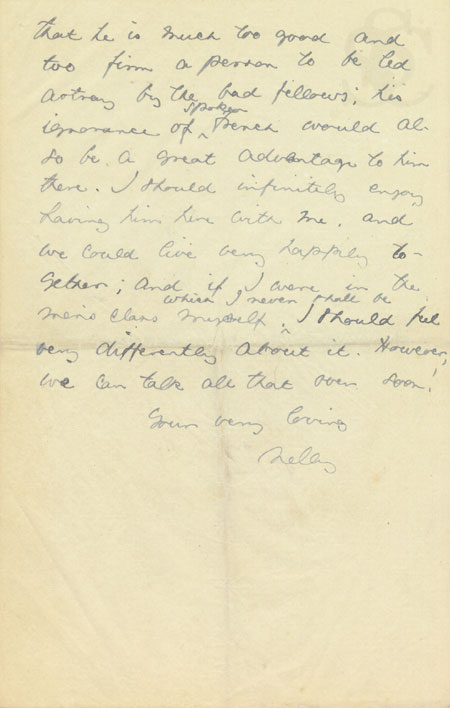 that he is much too good and
too firm a person to be led
astray by the bad fellows; his
spoken
ignorance of ^ French would al-
so be a great advantage to him
there. I should infinitely enjoy
having him here with me, and
we could live very happily to-
gether; and if I were in the
which I never shall be
men's class myself ^, I should feel
very differently about it. However,
we can talk all that over soon!
Your very loving
Nelly